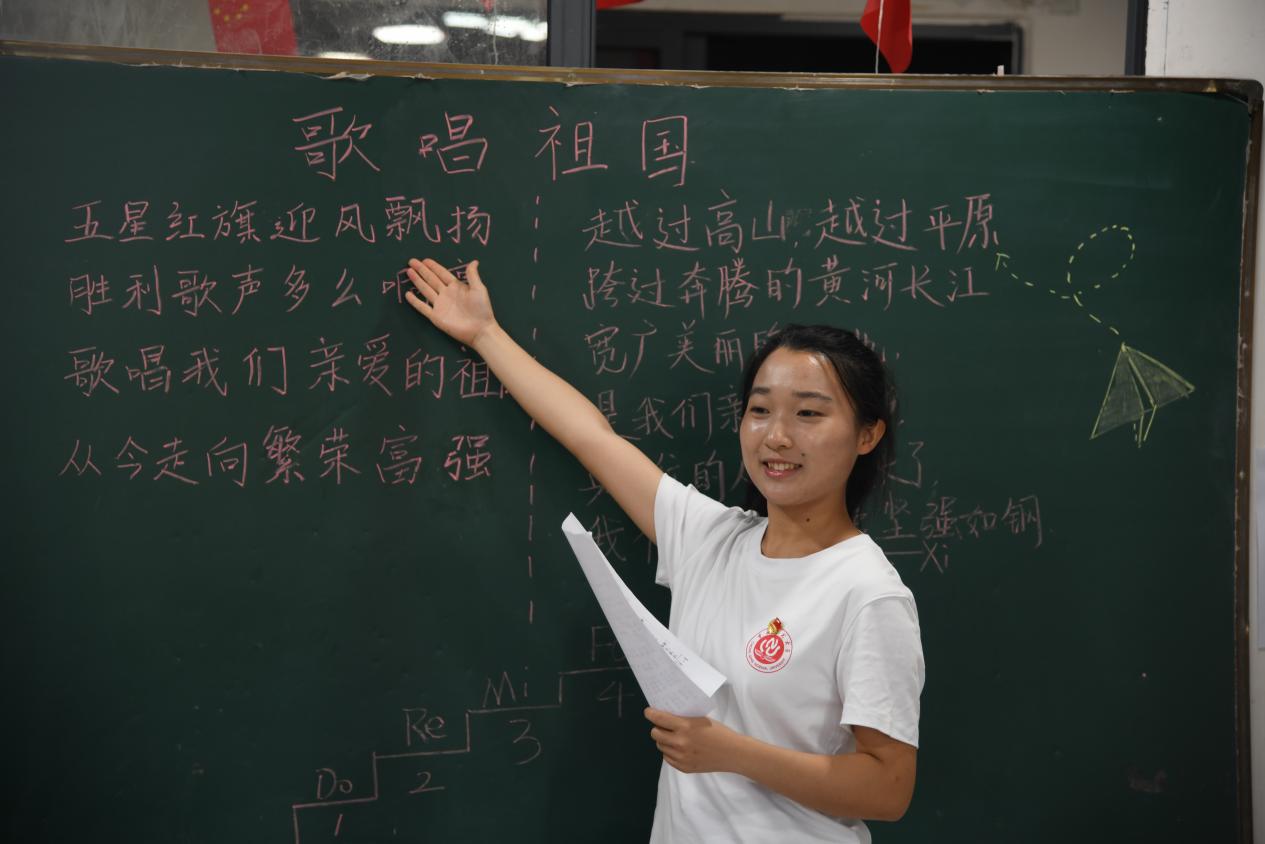 歌唱祖国
五星红旗迎风飘扬
胜利歌声多么
歌唱我们亲爱的祖
从今走向繁荣富强
越过高山,越过平原
跨过奔腾的黄河长江
宽广美丽
是我们亲
的
我 坚强如钢
Xi
Mi
4
Re
3
Do
2
1